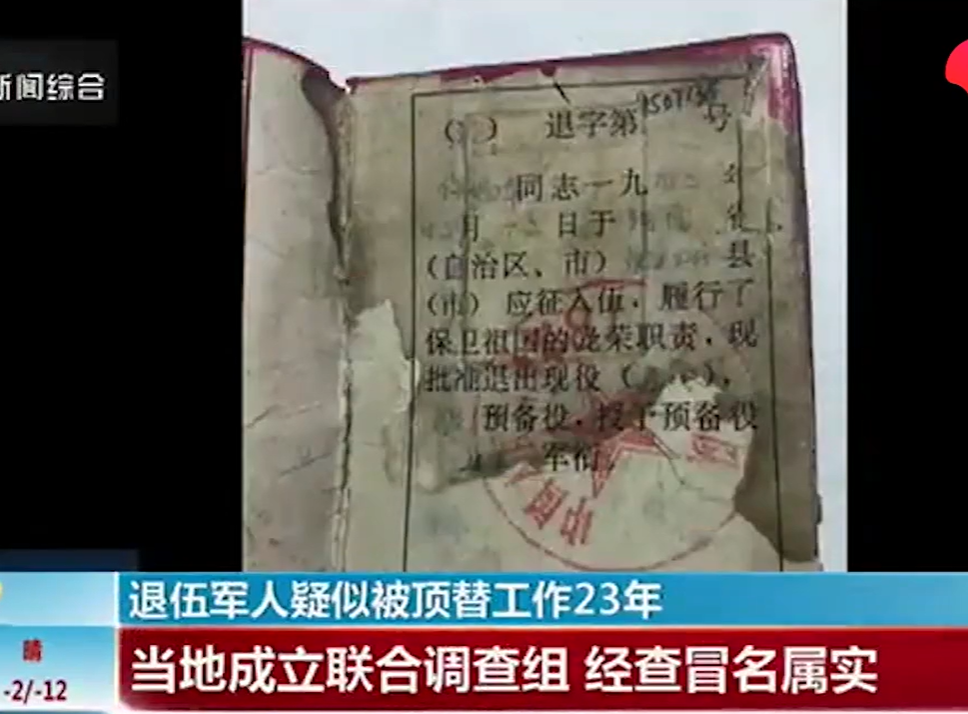 新闻综合
退字第 号
同志一九 年
月 日于
(自治区、市) 县
(市) 应征入伍，履行了
保卫祖国的光荣职责，现
批准退出现役
预备役，授予预备役
军衔。
退伍军人疑似被顶替工作23年
晴
当地成立联合调查组 经查冒名属实
-2/-12